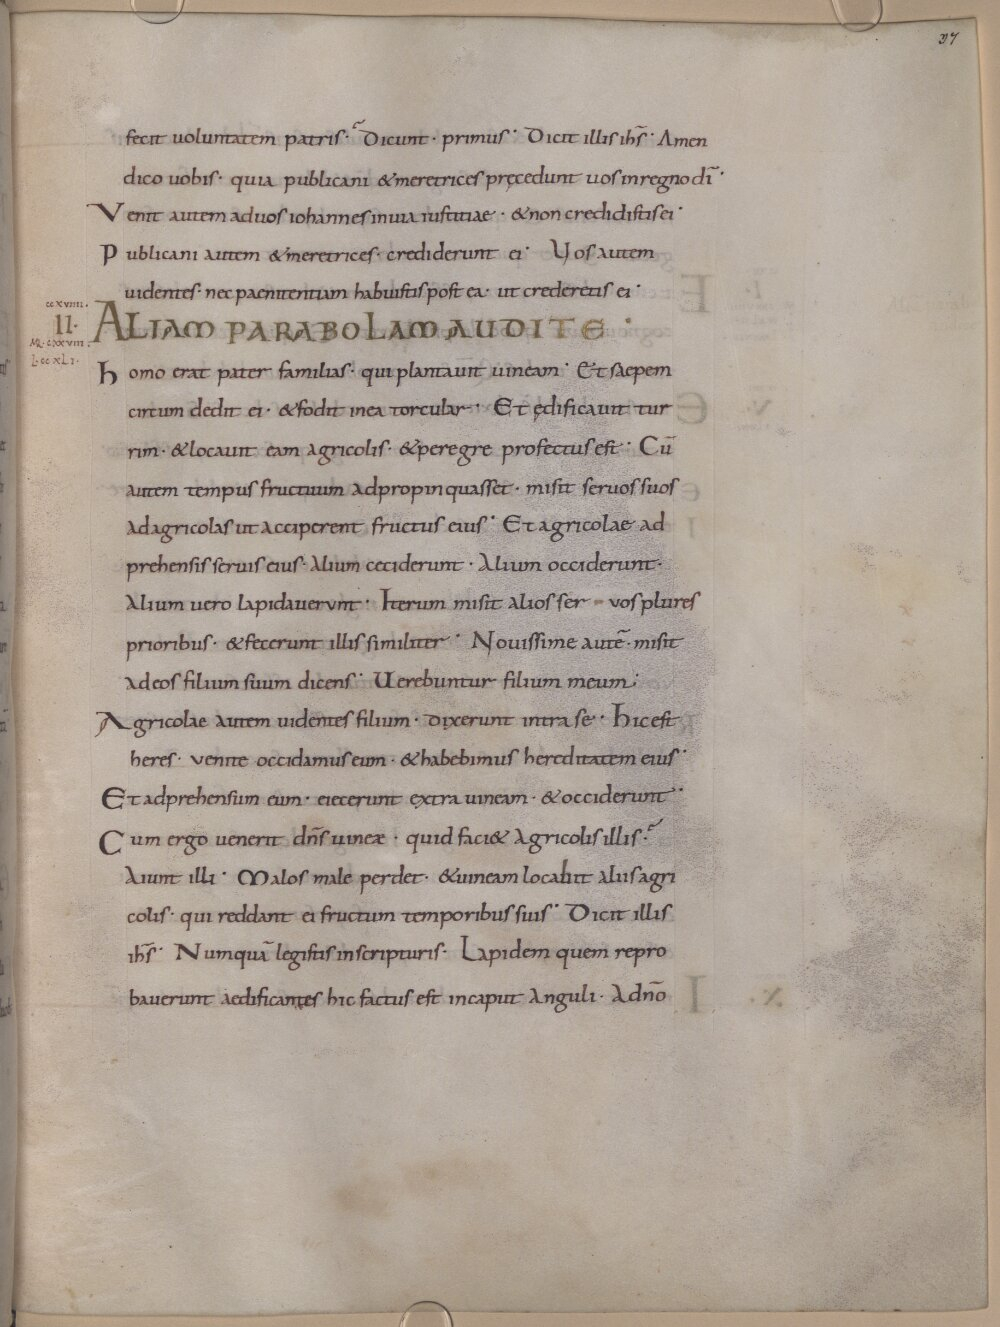 37
fecit uoluntatem patris· Dicunt· primus· Dicit illis ihs̄· Amen
dico uobis· quia publicani &meretrices pręcedunt uos in regno dī·
Venit autem ad uos iohannes in uia iustitiae· & non credidistis ei·
Publicani autem &meretrices· crediderunt ei· Vos autem
uidentes· nec paenitentiam habuistis post ea· ut crederetis ei·
ccxviiii·
II· ALIAM PARABOLAM AUDITE·
MR· cxxviii·
L·ccxLI·
homo erat pater familias· qui plantauit uineam· Et saepem
circum dedit ei· &fodit in ea torcular· Et ędificauit tur
rim· &locauit eam agricolis· &peregre profectus est· Cū
autem tempus fructuum adpropinquasset· misit seruos suos
ad agricolas ut acciperent fructus eius· Et agricolae ad
prehensis seruis eius· Alium ceciderunt· Alium occiderunt·
Alium uero lapidauerunt· Iterum misit alios ser-uos plures
prioribus· &fecerunt illis similiter· Nouissime autē· misit
ad eos filium suum dicens· Uerebuntur filium meum·
Agricolae autem uidentes filium· dixerunt intra se· hic est
heres· venite occidamus eum· &habebimus hereditatem eius·
Et adprehensum eum· eiecerunt extra uineam· &occiderunt·
Cum ergo uenerit dn̄s uineæ· quid faci& agricolis illis·
Aiunt illi· Malos male perdet· &uineam locabit aliis agri
colis· qui reddant ei fructum temporibus suis· Dicit illis
ihs̄· Numquā legistis in scripturis· Lapidem quem repro
bauerunt aedificantes hic factus est in caput anguli· A dn̄o